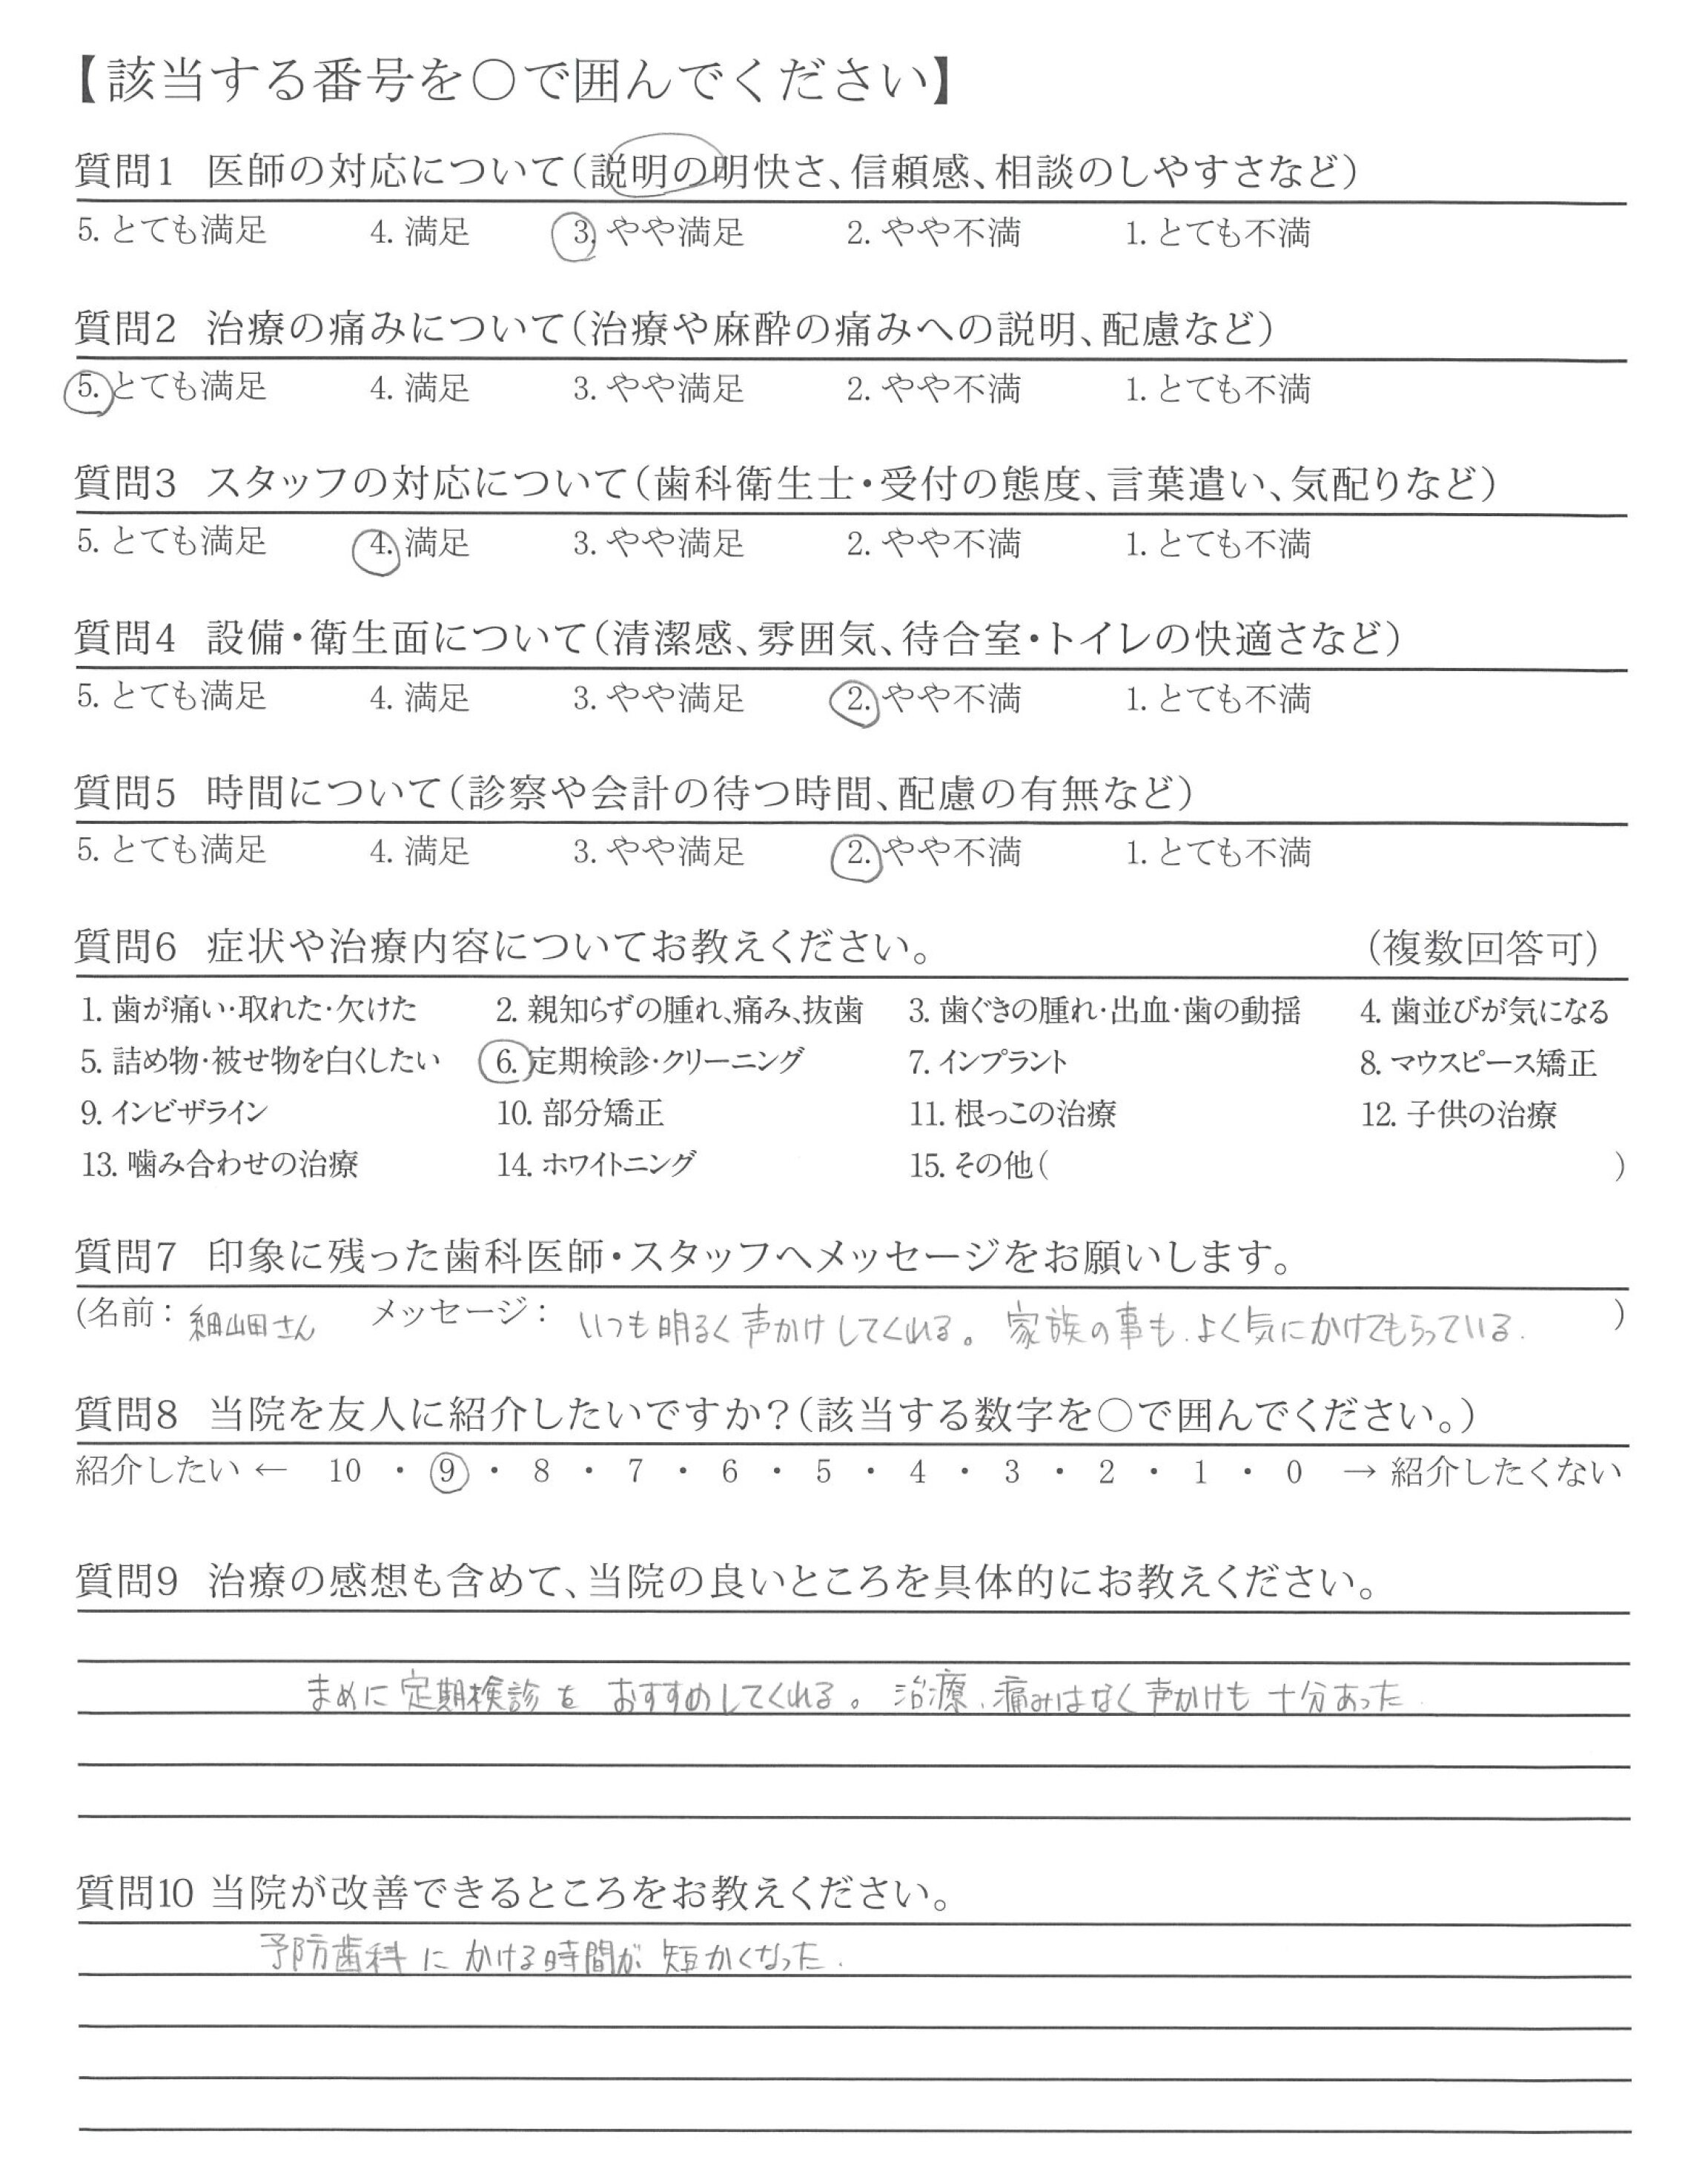 【該当する番号を○で囲んでください】
質問1 医師の対応について(説明の明快さ、信頼感、相談のしやすさなど)
5. とても満足 4. 満足 3. やや満足 2. やや不満 1. とても不満
質問2 治療の痛みについて(治療や麻酔の痛みへの説明、配慮など)
5. とても満足 4. 満足 3. やや満足 2. やや不満 1. とても不満
質問3 スタッフの対応について(歯科衛生士・受付の態度、言葉遣い、気配りなど)
5. とても満足 4. 満足 3. やや満足 2. やや不満 1. とても不満
質問4 設備・衛生面について(清潔感、雰囲気、待合室・トイレの快適さなど)
5. とても満足 4. 満足 3. やや満足 2. やや不満 1. とても不満
質問5 時間について(診察や会計の待つ時間、配慮の有無など)
5. とても満足 4. 満足 3. やや満足 2. やや不満 1. とても不満
質問6 症状や治療内容についてお教えください。 (複数回答可)
1. 歯が痛い・取れた・欠けた 2. 親知らずの腫れ、痛み、抜歯 3. 歯ぐきの腫れ・出血・歯の動揺 4. 歯並びが気になる
5. 詰め物・被せ物を白くしたい 6. 定期検診・クリーニング 7. インプラント 8. マウスピース矯正
9. インビザライン 10. 部分矯正 11. 根っこの治療 12. 子供の治療
13. 噛み合わせの治療 14. ホワイトニング 15. その他( )
質問7 印象に残った歯科医師・スタッフへメッセージをお願いします。
(名前: 細山田さん メッセージ: いつも明るく声かけしてくれる。家族の事も、よく気にかけてもらっている. )
質問8 当院を友人に紹介したいですか?(該当する数字を○で囲んでください。)
紹介したい ← 10 ・ 9 ・ 8 ・ 7 ・ 6 ・ 5 ・ 4 ・ 3 ・ 2 ・ 1 ・ 0 → 紹介したくない
質問9 治療の感想も含めて、当院の良いところを具体的にお教えください。
まめに定期検診をおすすめしてくれる。治療、痛みはなく声かけも十分あった.
質問10 当院が改善できるところをお教えください。
予防歯科にかける時間が短かくなった.